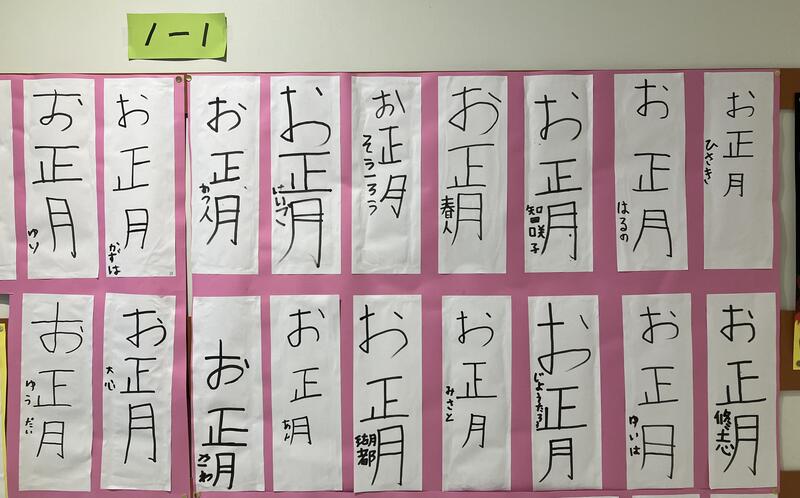 1-1
お正月
ゆり
お正月
かずは
お正月
かつ人
お正月
けいつこ
お正月
そういちろう
お正月
春人
お正月
智咲子
お正月
はるの
お正月
ひさき
お正月
ゆうだい
お正月
大心
お正月
お正月
あん
お正月
瑚都
お正月
みさと
お正月
じょうたろう
お正月
ゆいは
お正月
修志